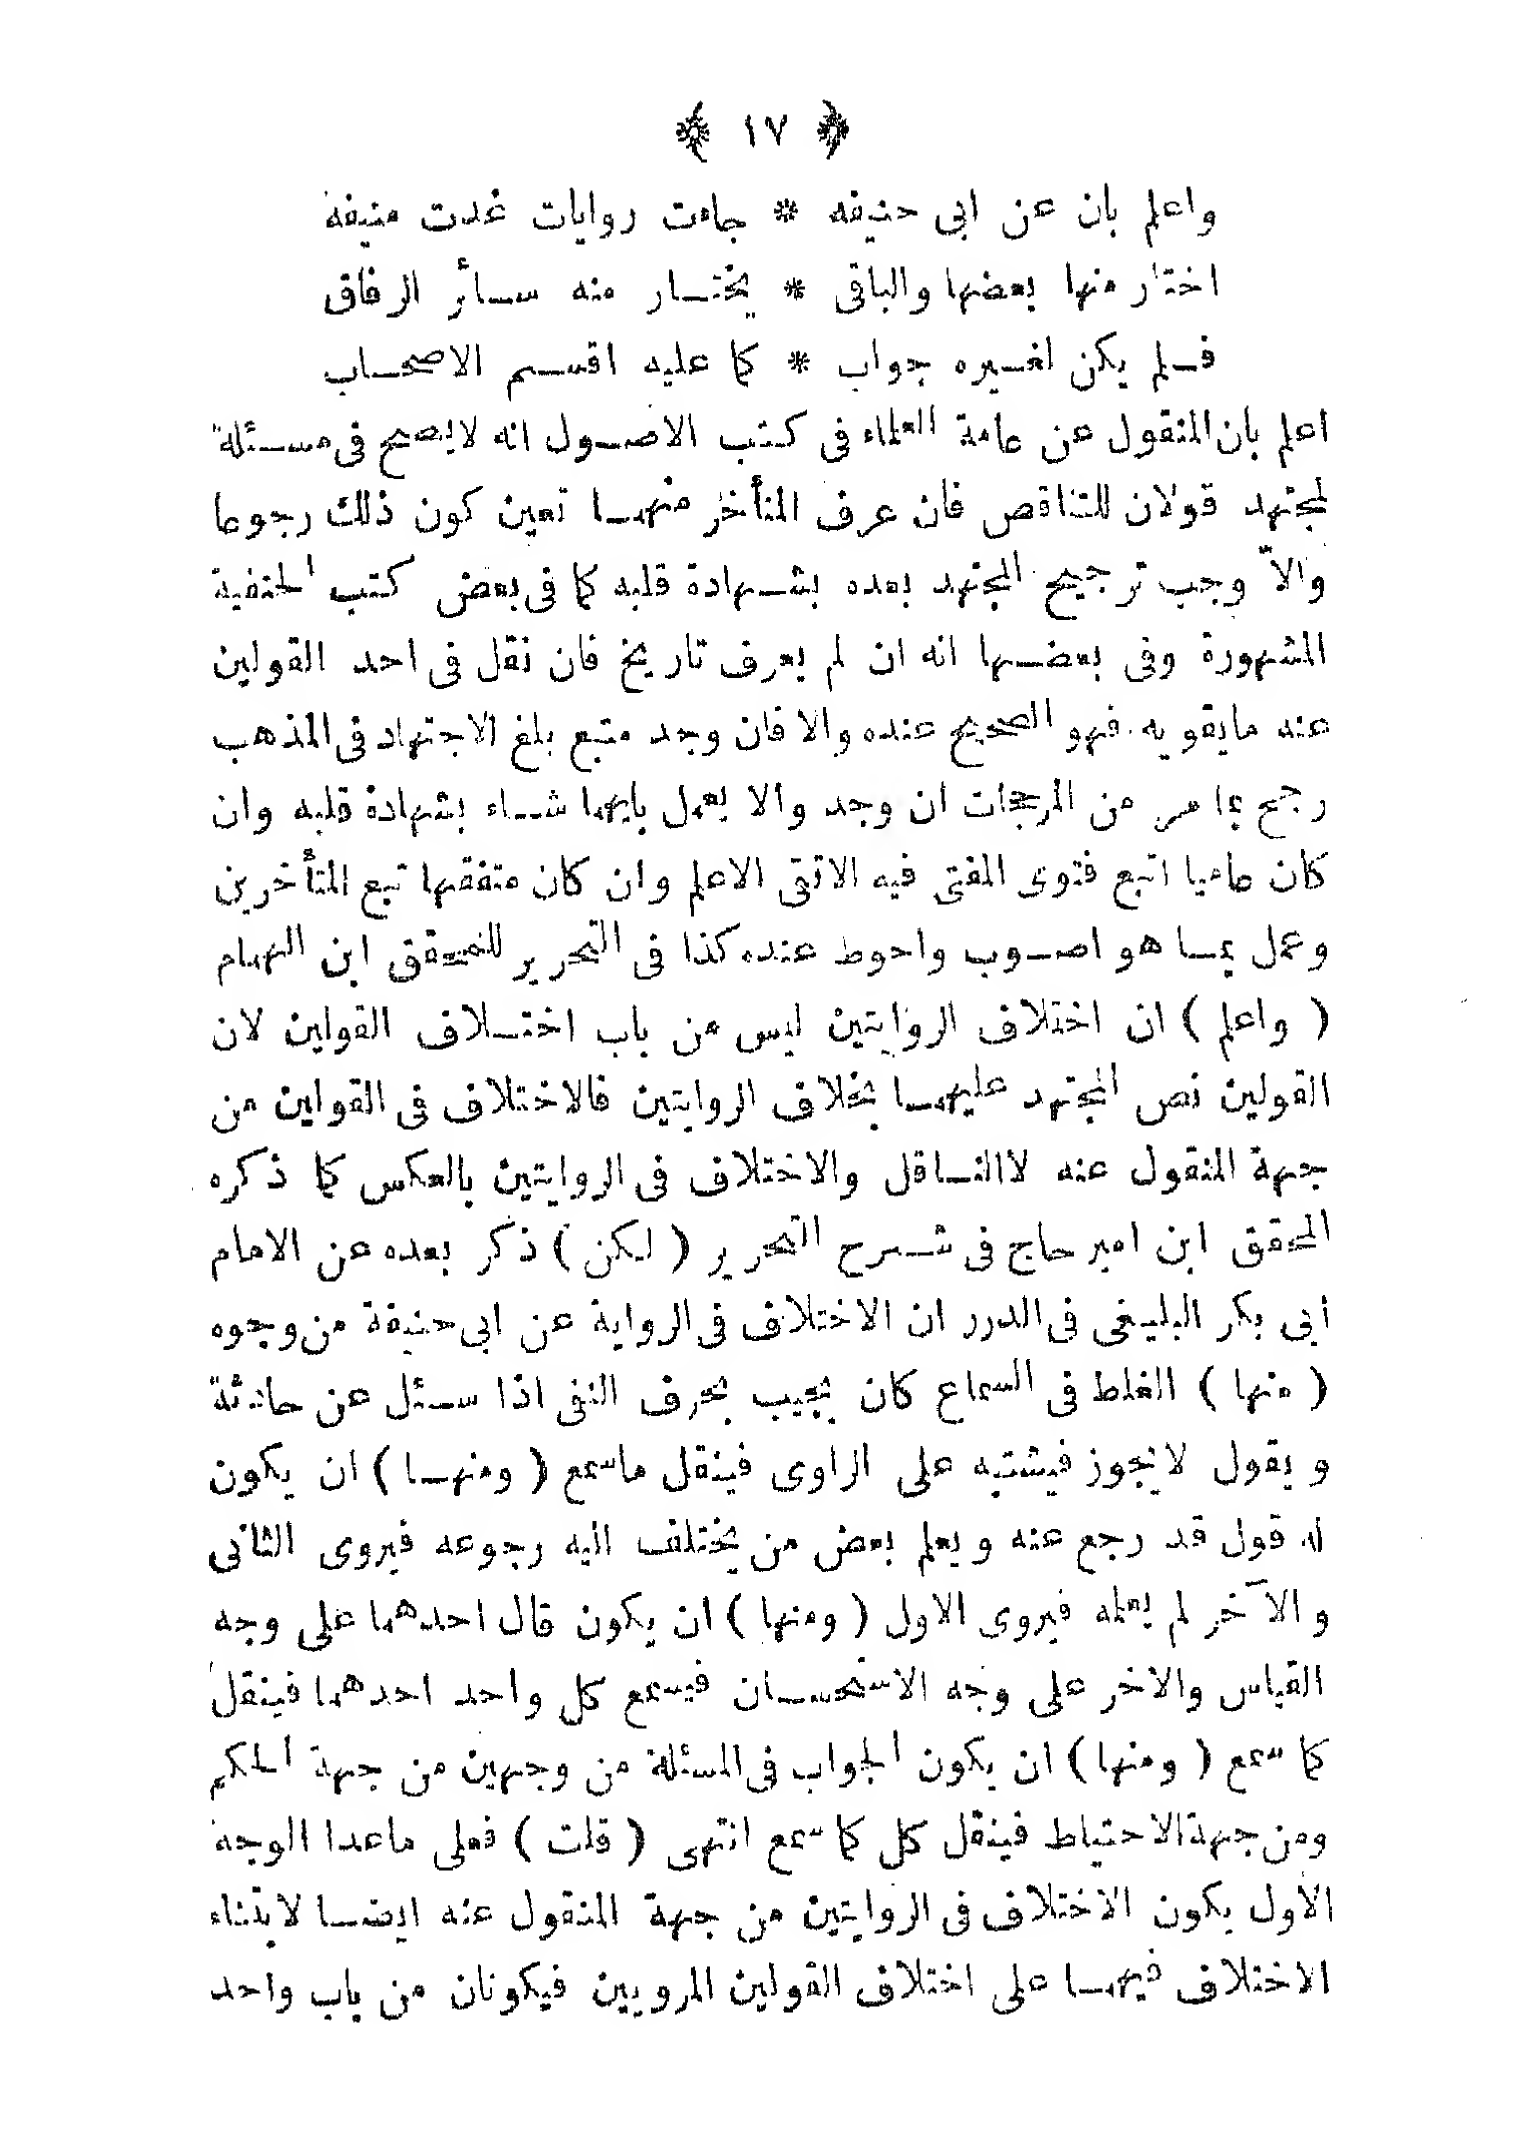 ﴿ ١٧ ﴾
واعلم بان عن ابى حنيفه * جاءت روايات غدت منيفه
اختار منها بعضها والباقى * يختار منه سائر الرفاق
فلم يكن لغيره جواب * كما عليه اقسم الاصحاب
اعلم بان المنقول عن عامة العلماء فى كتب الاصول انه لا يصح فى مسئلة
لمجتهد قولان للتناقض فان عرف المتأخر منهما تعين كون ذلك رجوعا
والاّ وجب ترجيح المجتهد بعده بشهادة قلبه كما فى بعض كتب الحنفية
المشهورة وفى بعضها انه ان لم يعرف تاريخ فان نقل فى احد القولين
عنه ما يقويه فهو الصحيح عنده والا فان وجد متبع بلغ الاجتهاد فى المذهب
رجح بما مر من المرجحات ان وجد والا يعمل بايهما شاء بشهادة قلبه وان
كان عاميا اتبع فتوى المفتى فيه الاتقى الاعلم وان كان متفقها تبع المتأخرين
وعمل بما هو اصوب واحوط عنده كذا فى التحرير للمحقق ابن الهمام
( واعلم ) ان اختلاف الروايتين ليس من باب اختلاف القولين لان
القولين نص المجتهد عليهما بخلاف الروايتين فالاختلاف فى القولين من
جهة المنقول عنه لا الناقل والاختلاف فى الروايتين بالعكس كما ذكره
المحقق ابن امير حاج فى شرح التحرير ( لكن ) ذكر بعده عن الامام
أبى بكر البليغى فى الدرر ان الاختلاف فى الرواية عن ابى حنيفة من وجوه
( منها ) الغلط فى السماع كان يجيب بحرف النفى اذا سئل عن حادثة
ويقول لا يجوز فيشتبه على الراوى فينقل ما سمع ( ومنها ) ان يكون
له قول قد رجع عنه ويعلم بعض من يختلف اليه رجوعه فيروى الثانى
والآخر لم يعلمه فيروى الاول ( ومنها ) ان يكون قال احدهما على وجه
القياس والاخر على وجه الاستحسان فيسمع كل واحد احدهما فينقل
كما سمع ( ومنها ) ان يكون الجواب فى المسئلة من وجهين من جهة الحكم
ومن جهة الاحتياط فينقل كل كما سمع انتهى ( قلت ) فعلى ما عدا الوجه
الاول يكون الاختلاف فى الروايتين من جهة المنقول عنه ايضا لابتناء
الاختلاف فيهما على اختلاف القولين المرويين فيكونان من باب واحد